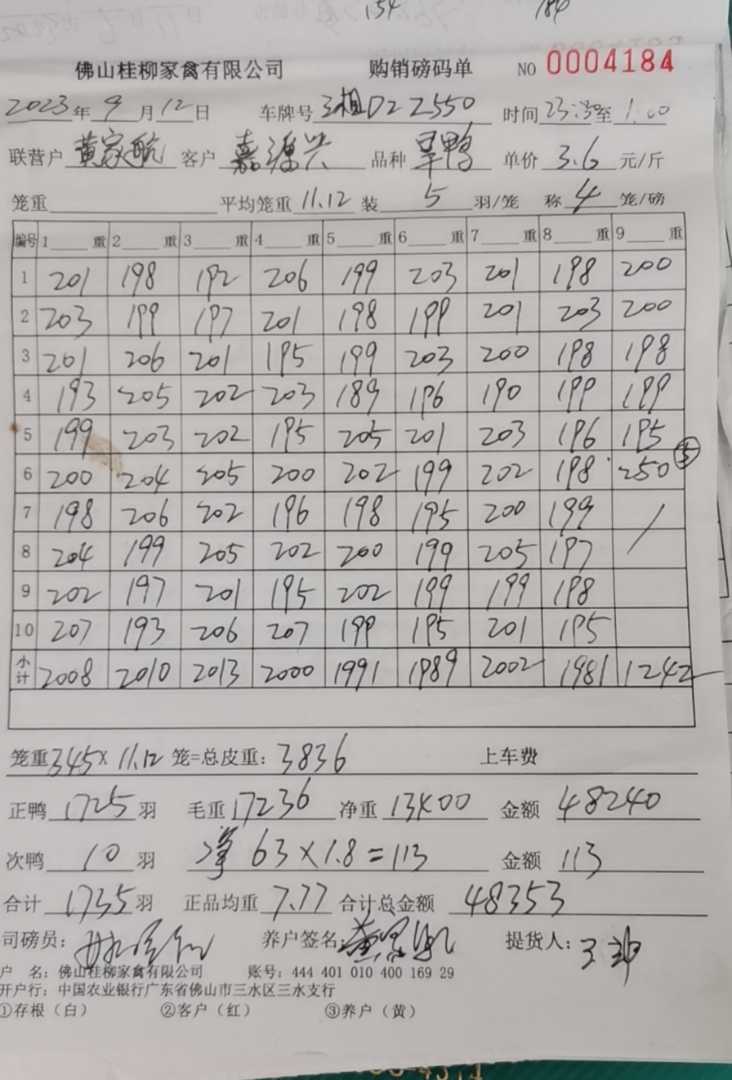 154 184
佛山桂柳家禽有限公司 购销磅码单 NO 0004184
2023年9月12日 车牌号 D2Z550 时间23:30至1:00
联营户 黄家航 客户 嘉源兴 品种 旱鸭 单价 3.6 元/斤
笼重 平均笼重 11.12 装 5 羽/笼 称 4 笼/磅
编号 1 重 2 重 3 重 4 重 5 重 6 重 7 重 8 重 9 重
1 201 198 192 206 199 203 201 198 200
2 203 199 197 201 198 199 201 203 200
3 201 206 201 195 199 203 200 198 198
4 193 205 202 203 189 196 190 199 199
5 199 203 202 195 205 201 203 196 195
6 200 204 205 200 202 199 202 198 250 ⑤
7 198 206 202 196 198 195 200 199 /
8 204 199 205 202 200 199 205 197
9 202 197 201 195 202 199 199 198
10 207 193 206 207 199 195 201 195
小计 2008 2010 2013 2000 1991 1989 2002 1981 1242
笼重345×11.12笼=总皮重:3836 上车费
正鸭 1725 羽 毛重 17236 净重 13400 金额 48240
次鸭 10 羽 净 63×1.8=113 金额 113
合计 1735 羽 正品均重 7.77 合计总金额 48353
司磅员: 养户签名: 黄家航 提货人:
户 名:佛山桂柳家禽有限公司 账号:444 401 010 400 169 29
开户行:中国农业银行广东省佛山市三水区三水支行
①存根(白) ②客户(红) ③养户(黄)